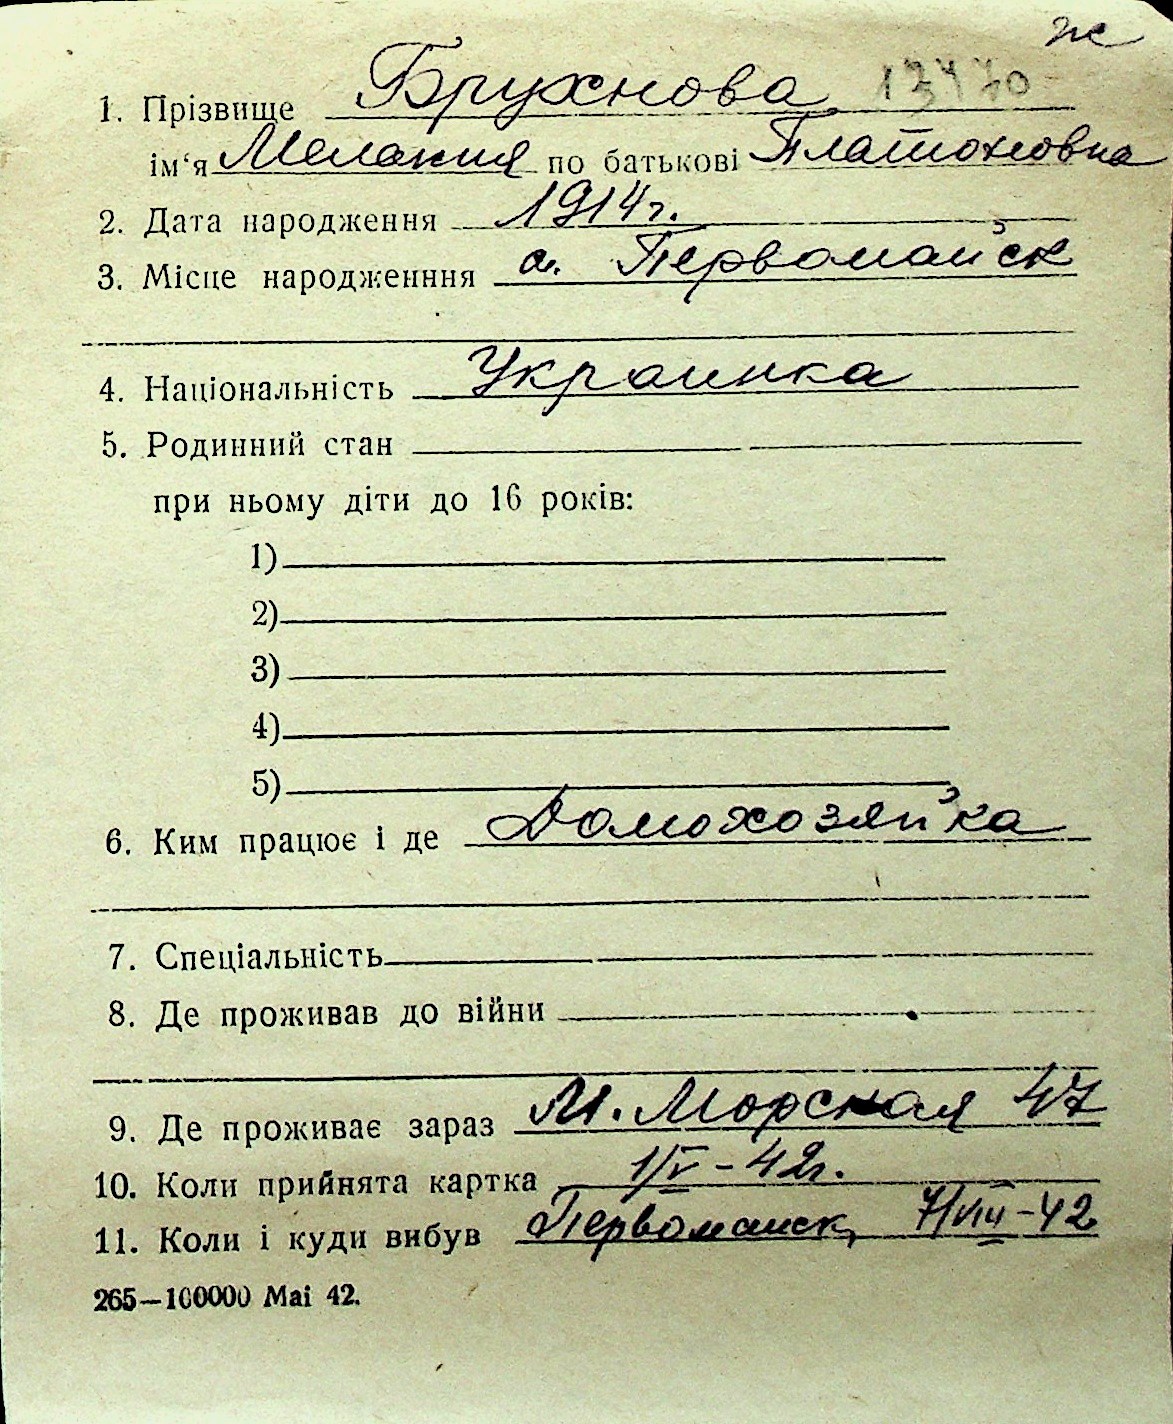 ж
1. Прізвище Брухнова 13470
ім‘я Мелания по батькові Платоновна
2. Дата народження 1914г.
3. Місце народженння с. Первомайск
4. Національність Украинка
5. Родинний стан
при ньому діти до 16 років:
1)
2)
3)
4)
5)
6. Ким працює і де Домохозяйка
7. Спеціальність
8. Де проживав до війни
9. Де проживає зараз М. Морская 47
10. Коли прийнята картка 1/V – 42г.
11. Коли і куди вибув Первомаиск, 7/VIII – 42
265—100000 Mai 42.